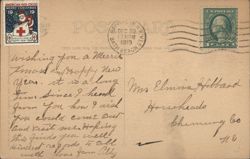 POST CARD
DEC 23
1913
Wishing you a Merry
Xmas & Happy New
Year. it is a long
time since I heard
from you how I wish
you could come over
and visit me. Hoping
this finds you well
kindest regards to all
with love from
Mrs Elmina Hibbard
Horseheads
Chemung Co
N.Y.